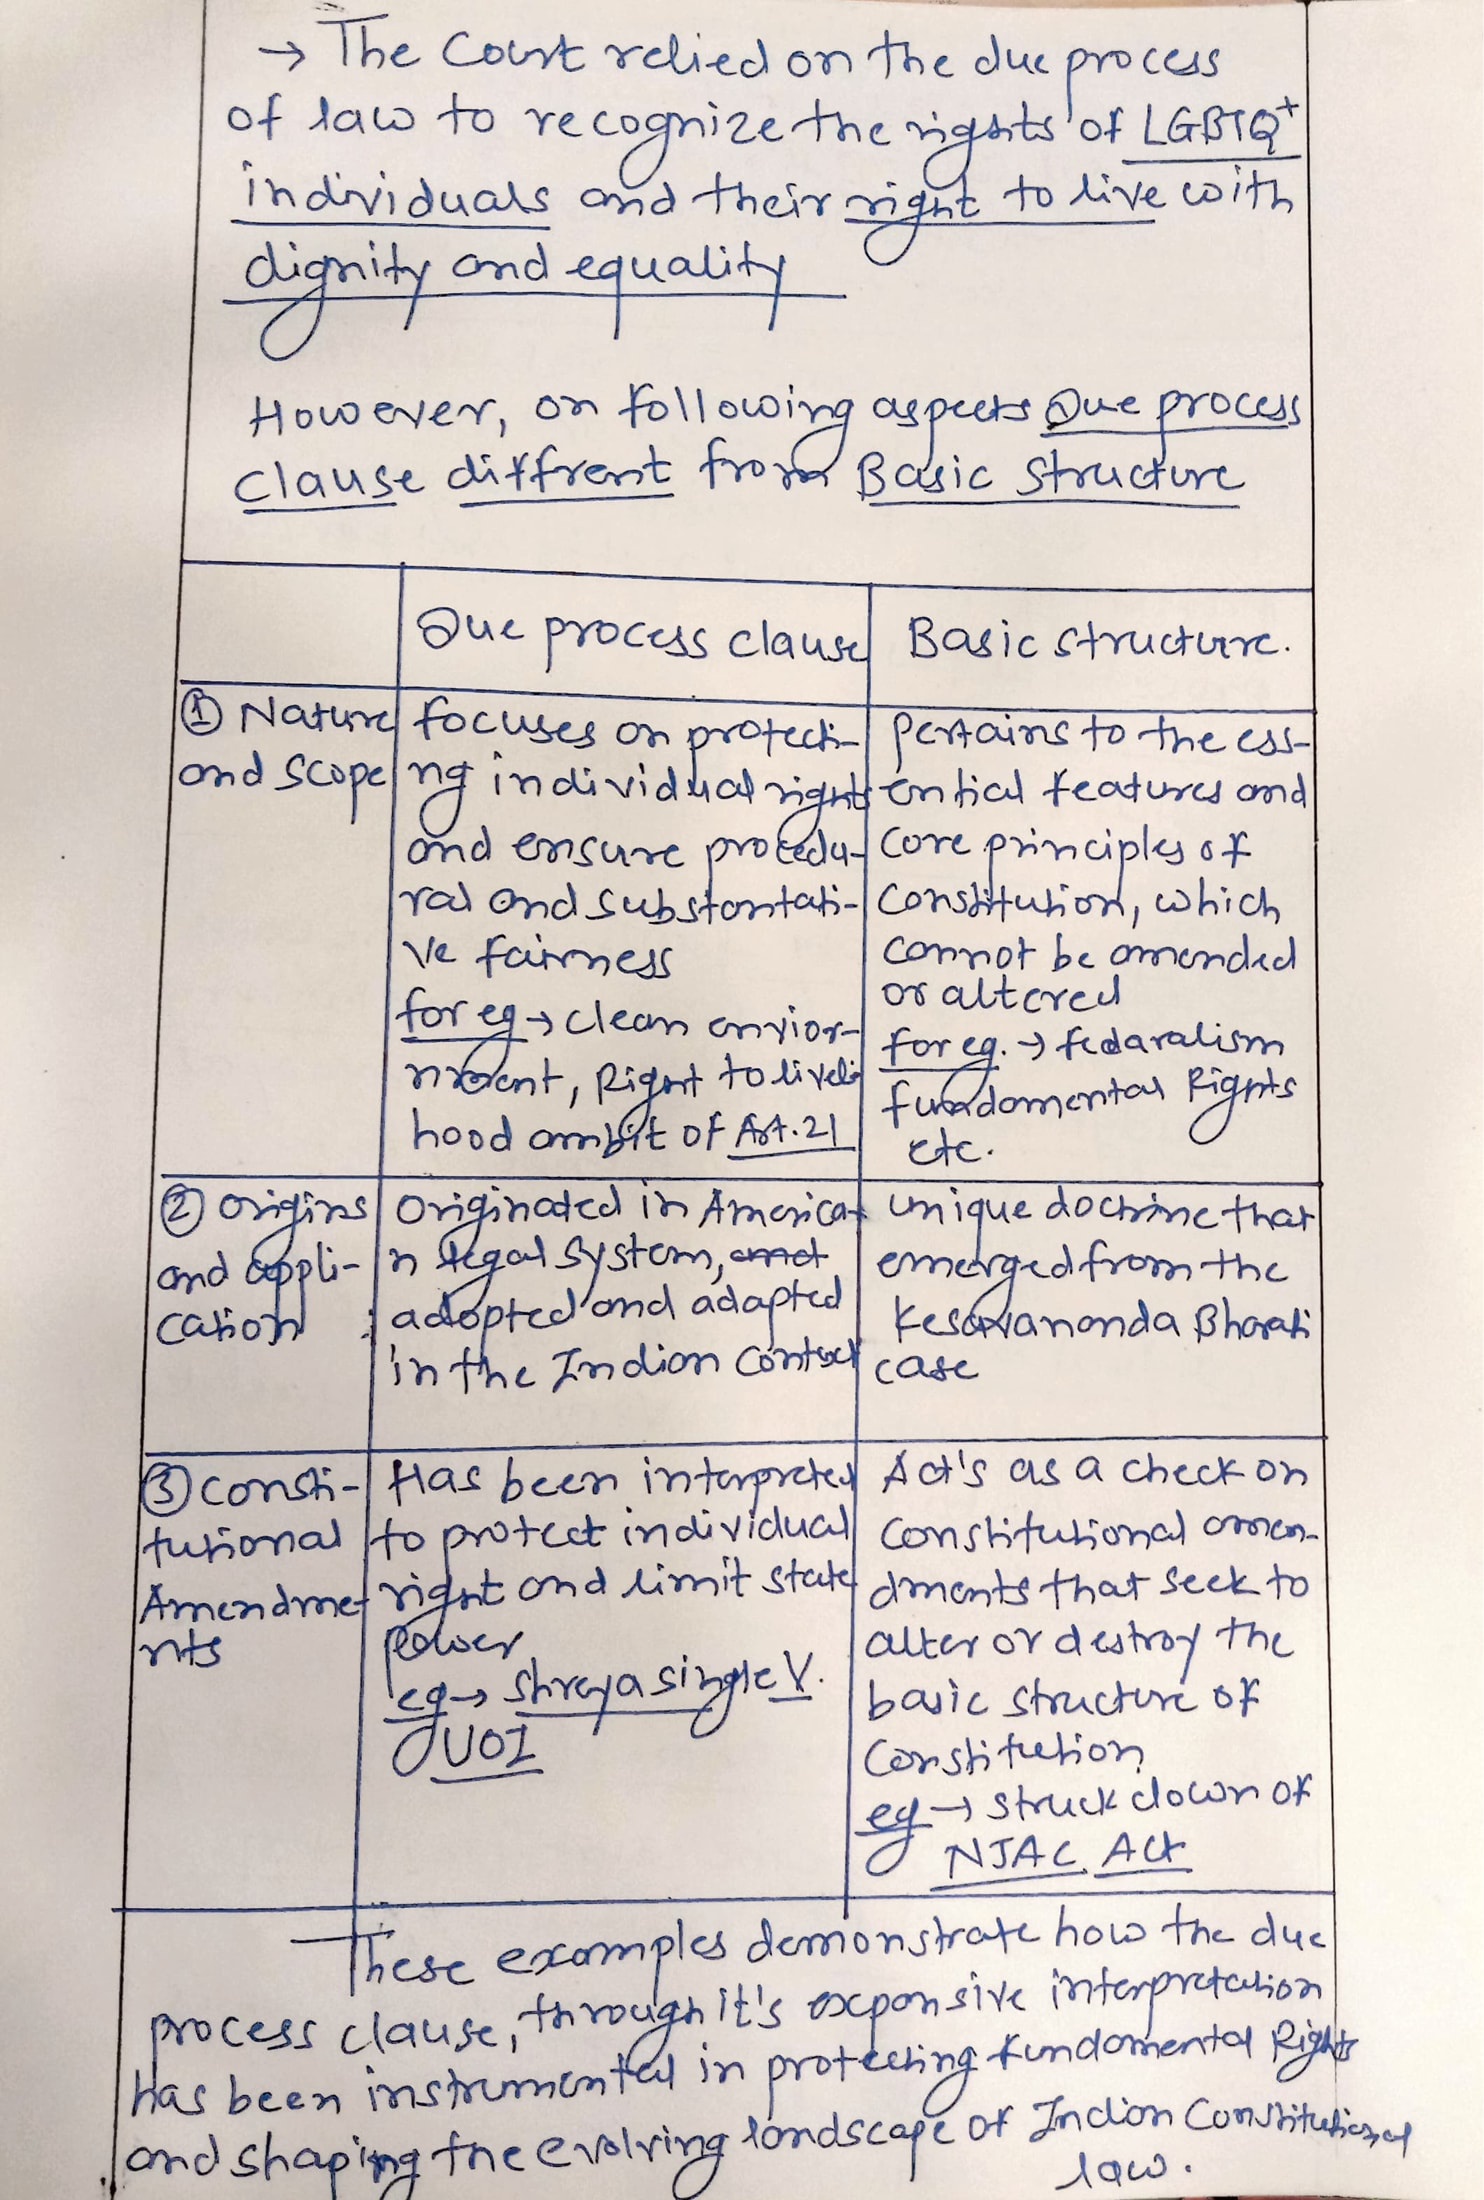 → The Court relied on the due process
of law to recognize the rights of LGBTQ+
individuals and their right to live with
dignity and equality
However, on following aspects Due process
clause diffrent from Basic Structure
Due process clause
Basic structure.
① Nature
and scope
focuses on protecti-
ng individual rights
and ensure procedu-
ral and substantati-
ve fairness
for eg → clean envior-
nment, Right to liveli
hood ambit of Art.21
Pertains to the ess-
ential features and
core principles of
Constitution, which
cannot be amended
or altered
for eg. → fedaralism
fundamental Rights
etc.
② origins
and appli-
cation
Originated in America-
n legal system, and
adopted and adapted
in the Indian Context
unique doctrine that
emerged from the
Kesavananda Bharati
case
③ consti-
tutional
Amendme-
nts
Has been interpreted
to protect individual
right and limit state
power
eg → shreya single V.
UOI
Act's as a check on
Constitutional amen-
dments that seek to
alter or destroy the
basic structure of
Constitution
eg → struck down of
NJAC Act
These examples demonstrate how the due
process clause, through it's expansive interpretation
has been instrumental in protecting fundamental Rights
and shaping the evolving landscape of Indian Constitutional
law.